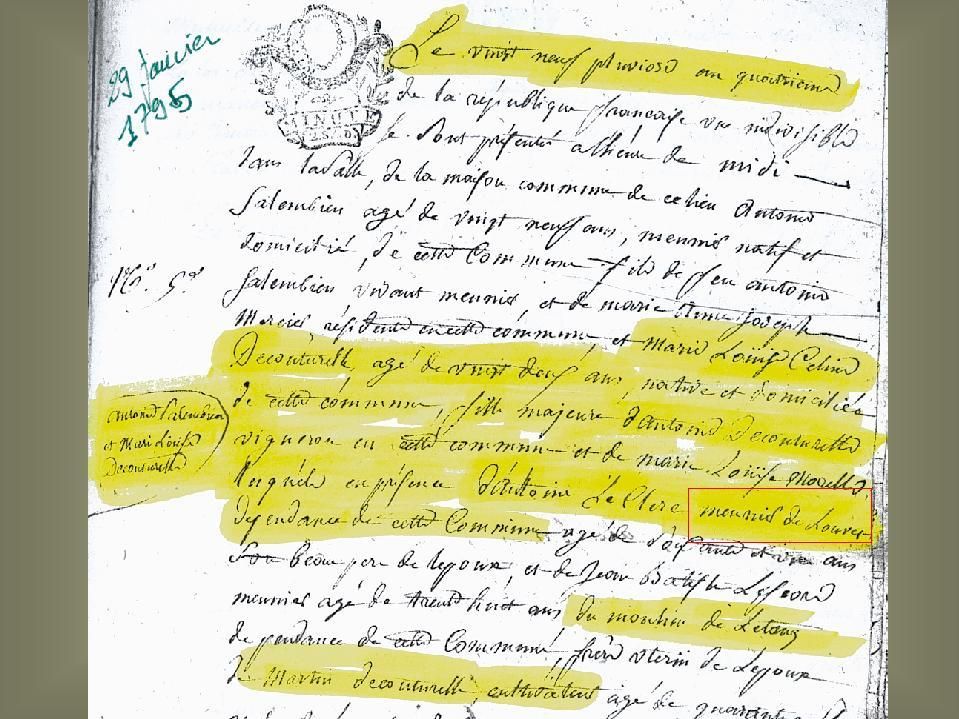 29 Janvier
1795
Le vingt neuf pluviose an quatrieme
de la république francaise une indivisible
se sont présentés a lheure de midi
dans la salle, de la maison commune de ce lieu Antoine
Salembien agé de vingt neuf ans, meunier natif et
domicilié, de cette Commune fils de feu antoine
Salembien vivant meunier, et de marie Anne joseph
Mercier résidente en cette commune, et Marie Loüise Celine
Decouturelle, agé de vingt deux ans, native et domiciliée
de cette commune, fille majeure d'antoine Decouturelle
vigneron en cette commune et de marie Loüise
en présence d'Antoine Le Clerc meunier de Louver
dependance de cette Commune agé de soixante et ans
Son beau pere de lepoux, et de Jean Batiste
meunier agé de trente huit ans du moulin de Letang
dependance de cette Commune, frere uterin de Lepoux
de Martin decouturelle, cultivateur agé de quarante
antoine Salembien
et Marie Louise
Decouturelle